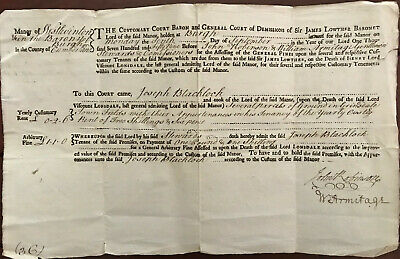 Manor of Westlinton
in the Barony of
Burgh
In the County of Cumberland
THE CUSTOMARY COURT BARON and GENERAL COURT OF DEMISSION OF SIR JAMES LOWTHER BARONET
Lord of the said Manor, holden at Burgh around for the said Manor on
Monday the Day of September in the Year of our Lord One Thou-
sand Seven Hundred and fifty five Before John Robinson & William Armitage Gentlemen
Stewards & Commissioners for the Assessing of the General Fines upon the several and respective Custo-
mary Tenants of the said Manor, due to the said Sir JAMES LOWTHER, on the Death of HENRY LORD
VISCOUNT LONSDALE, the late general admitting Lord for their several and respective Customary Tenements
within the same according to the Custom of the said Manor.
To this COURT came, Joseph Blacklock
of the Lord of the said Manor, (upon the Death of the said Lord
Viscount LONSDALE, last general admitting Lord of the said Manor) Several parcels
Town Fields with their Appurtenances in his Tenancy of the Yearly Customary
Rent of Two Shillings & Sixpence
Yearly Customary
Rent £ 0-2-6
Arbitrary
Fine £1-1-0
WHEREUPON the Lord by his said Stewards doth hereby admit the said Joseph Blacklock
Tenant of the said Premises on Payment of One Pound & One Shilling
for a General Arbitrary Fine Assessed as upon the Death of the said Lord LONSDALE according to the im-
proved value of the said Premises and according to the Custom of the said Manor. To have and to hold the said Premises, with the Appur-
tenances unto the said Joseph Blacklock according to the Custom of the said Manor
John Robinson
W Armitage
(26)